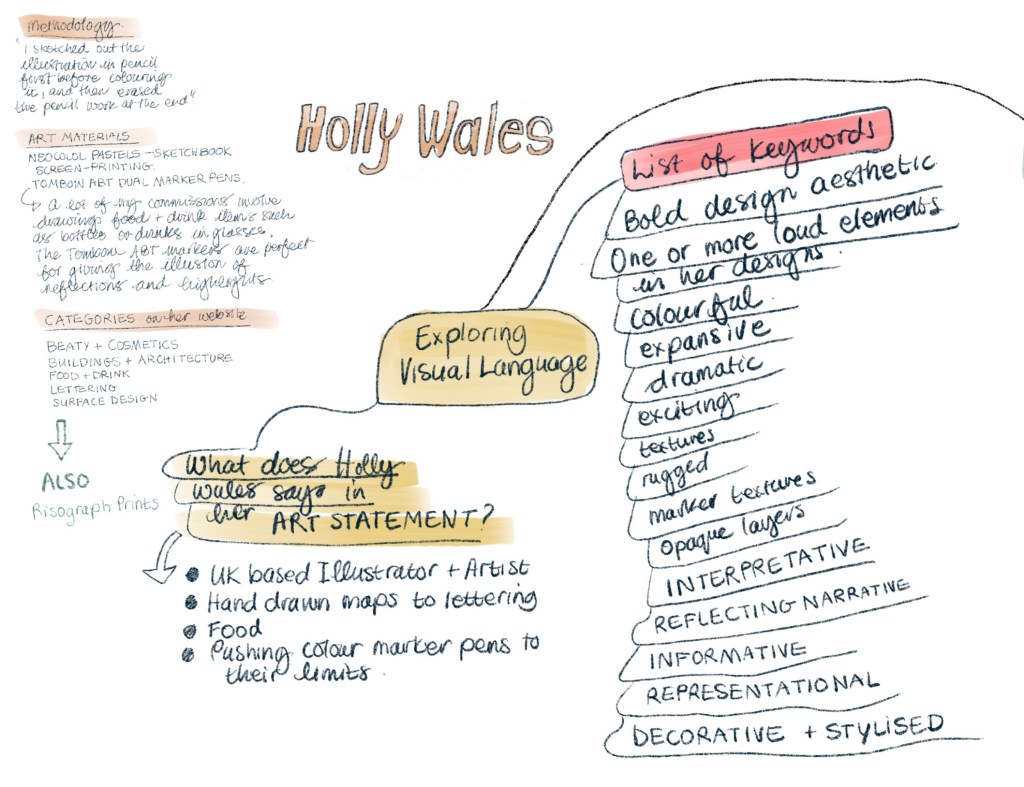 Methodology.
"I sketched out the
illustration in pencil
first before colouring
it, and then erased
the pencil work at the end"
ART MATERIALS
NEOCOLOL PASTELS - SKETCHBOOK
SCREEN-PRINTING.
TOMBOW ABT DUAL MARKER PENS.
A lot of my commissions involve
drawing food + drink items such
as bottles or drinks in glasses.
The Tombow ABT markers are perfect
for giving the illusion of
reflections and highlights
CATEGORIES on her website
BEATY + COSMETICS
BUILDINGS + ARCHITECTURE
FOOD + DRINK
LETTERING
SURFACE DESIGN
ALSO
Risograph Prints
Holly Wales
Exploring
Visual Language
What does Holly
Wales says in
her ART STATEMENT?
UK based Illustrator + Artist
Hand drawn maps to lettering
Food
Pushing colour marker pens to
their limits.
List of Keywords
Bold design aesthetic
One or more loud elements
in her designs.
Colourful.
expansive
dramatic
exciting
textures
rugged
marker textures
opaque layers
INTERPRETATIVE
REFLECTING NARRATIVE
INFORMATIVE
REPRESENTATIONAL
DECORATIVE + STYLISED